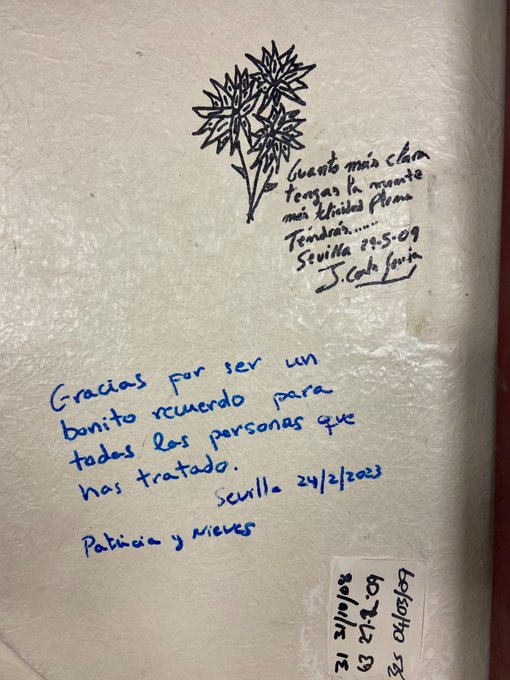 Cuanto más clara
tengas la muerte
más felicidad plena
Tendrás.....
Sevilla 29-5-09
Gracias por ser un
bonito recuerdo para
todas las personas que
has tratado.
Sevilla 24/2/2023
Patricia y Nieves